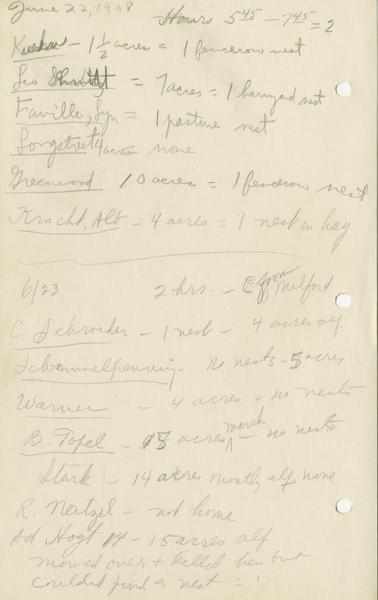 June 22, 1938
Hours 5 45 – 7 45 = 2
– 1 1/2 acres = 1 fencerow nest
Leo Schmidt = 7 acres = 1 barnyard nest
Faville, Lyn = 1 pasture nest
4 acres none
Greenwood 10 acres = 1 fencerow nest
Kracht, Alb – 4 acres = 1 nest in hay
6/23 2 hrs. – E from Milford
C. Schroeder – 1 nest – 4 acres alf.
– No nests – 5 acres
Warner – 4 acres – no nests
B. Topel – acres marsh – no nests
Stark – 14 acres mostly alf. none
R. Neitzel – not home
Ad. Hogt 14 – 15 acres alf.
mowed over + killed hen but
couldn't find a nest = 1